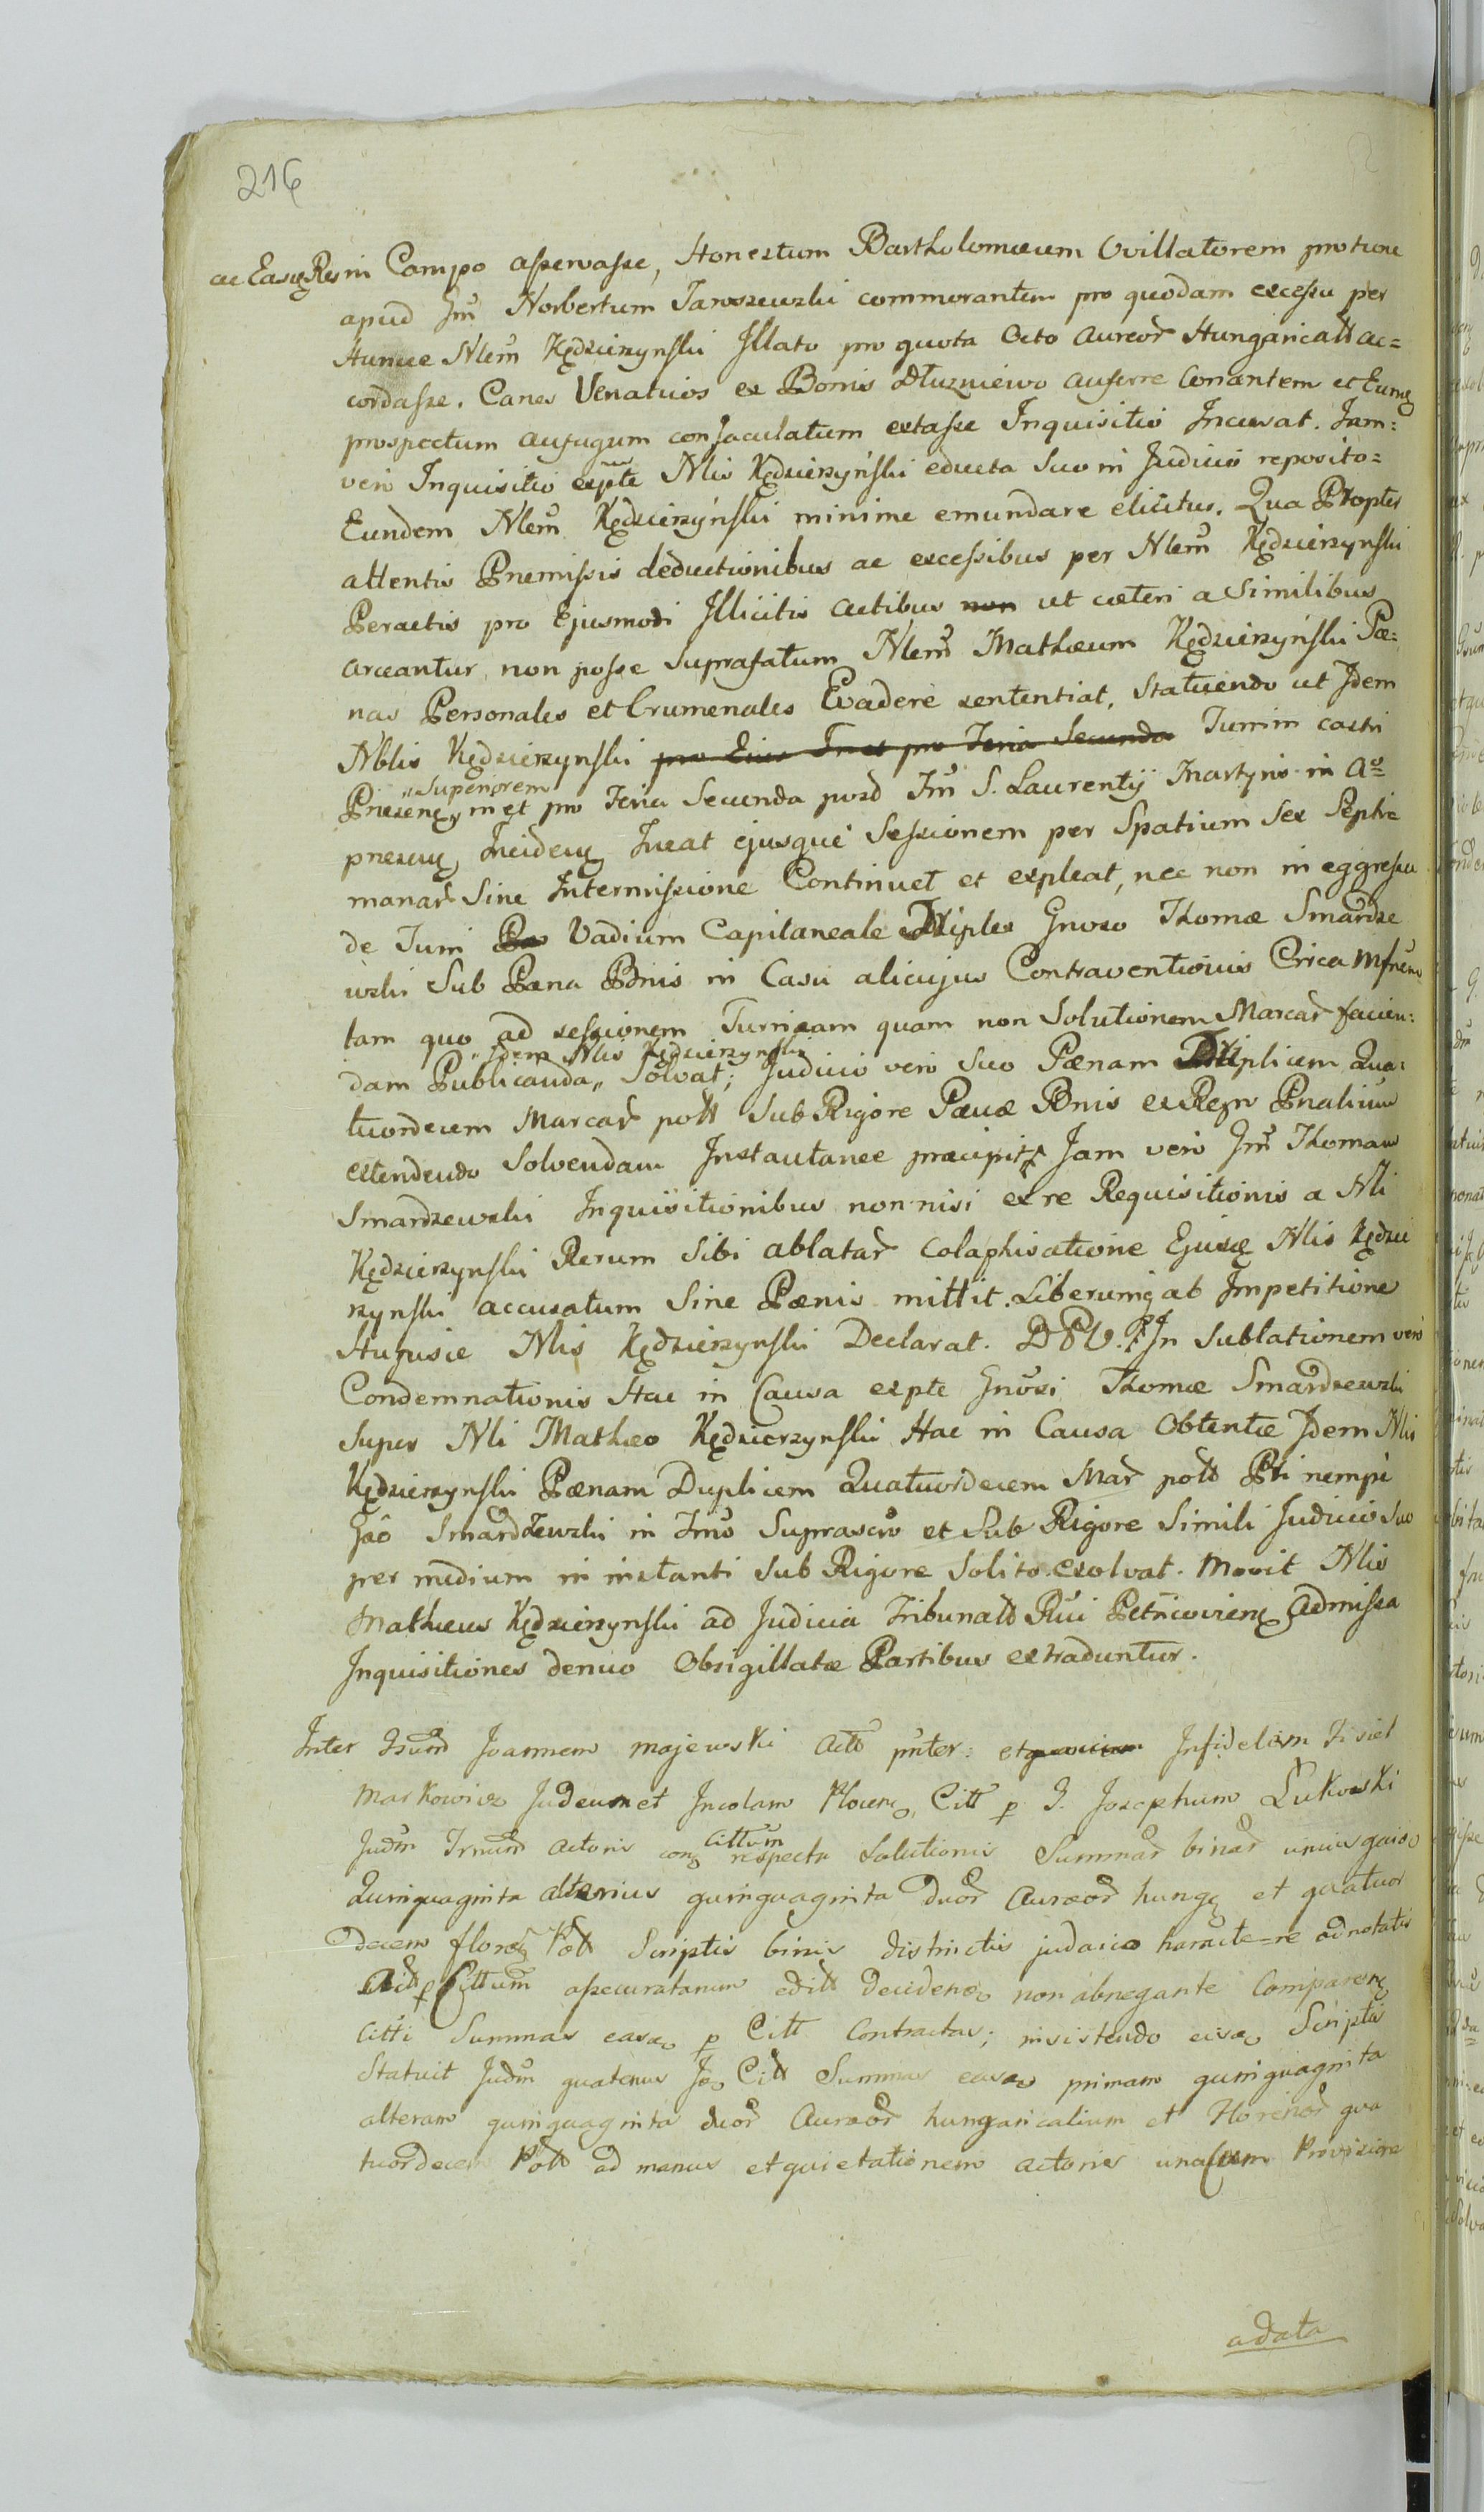 216
ac Easq Res in Campo asservasse, Honestum Bartholomæum Ovillatorem pro tunc
apud Jm̃ Norbertum Jaroszewski commorantem pro quodam excessu per
Hunce Nlem̃ Kędzierzynski Illato pro quota Octo Aureor̃ Hungaricall̃ ac=
cordasse. Canes Venaticos ex Bonis Dłuzniewo auferre Conantem et Eumq
prospectum aufugum conjaculatum extasse Inquisitio Incusat. Jam:
vero Inquisitio expte Nlis Kędzierzyński educta Suo in Judicio reposito=
Eundem Nlem̃ Kędzierzyński minime emundare elicitur. Qua Propter
attentis Præmissis deductionibus ac excessibus per Nlem̃ Kędzierzynski
Peractis pro Ejusmodi Illicitis Actibus non ut cæteri a Similibus
arceantur, non posse Suprafatum Nlem̃ Mathæum Kędzierzyński Pæ:
nas Personales et Crumenales Evadere sententiat, Statuendo ut Idem
Nblis Kędzierzynski pro Eius Tnes pro Feria Secunda Turrim castri
"Superiorem
Præsenq, m et pro Feria Secunda post Fm̃ S. Laurentÿ Martyris in Ao
præsenq Incidenq Ineat ejusque Sessionem per Spatium Sex Septi=
manar̃ Sine Intermissione Continuet et expleat, nec non in eggressu
de Turri Pæ Vadium Capitaneale Triplex Gnoso Thomæ Smardze
wski Sub Pæna Bnis in Casu alicujus Contraventionis Circa Mfnem̃
tam quo ad sessionem Turrisam quam non Solutionem Marcar̃ facien:
"Idem Nlis Kędzierzynski
dam Publicanda" Solvat; Judicio vero Suo Pænam Triplicem Qua:
tuordecem Marcar̃ poll̃ Sub Rigore Pænæ Bnis ex Regro Pnalium
extendendo Solvendam Instantanee præcipit. Jam vero Gm̃ Thomam
Smardzewski Inquisitionibus non nisi ex re Requisitionis a Nli
Kędzierzynski Rerum Sibi ablatar̃ Colaphisatione Ejusq Nlis Kędzie
rzynski accusatum Sine Pænis mittit. Liberumq ab Impetitione
Hujusce Nlis Kędzierzynski Declarat. D P V. In Sublationem vero
Condemnationis Hac in Causa expte Gnosi Thomæ Smardzewski
Super Nli Mathæo Kędzierzynski Hac in Causa Obtentæ Idem Nlis
Kędzierzynski Pænam Duplicem Quatuordecem Mar̃ poll̃ Pti nempe
Gso Smardzewski in Fm̃o Suprascro et Sub Rigore Simili Judicio Suo
per medium in instanti Sub Rigore Solito exolvat. Movit Nlis
Mathæus Kędzierzynski ad Judicia Tribunall̃ Rni Petricovienq Admissa
Inquisitiones denuo Obsigillatæ Partibus extraduntur.
Inter Joannem majewski Actt̃ pnter: et Infidelem Fisiel
Markowicz Judeum et Incolam Plocenq Citt̃ p J. Josephum Łukowski
Judm̃ actoris
Cittum
conq respectu Solutionis Summar̃ binar̃ unius quisq
Quinquaginta alterius quinquaginta Duor̃ Aureor̃ hungq et quatuor
Decem florq Poll̃ Scriptis binis distinctis judaico haracte=re adnotatis
p Cittum assecuratarum edill̃ Decidenq non abnegante Comparenq
Citti Summas easq p Citt̃ Contractas; insistendo eisq Scriptis
Statuit Judm̃ quatenus Is Citt̃ Summas easq primam quinquaginta
alteram quinquaginta duor̃ Aureor̃ hungaricalium et Florenor̃ qua
tuordecem Poll̃ ad manus et quietationem actoris una Cum Provisione
adata